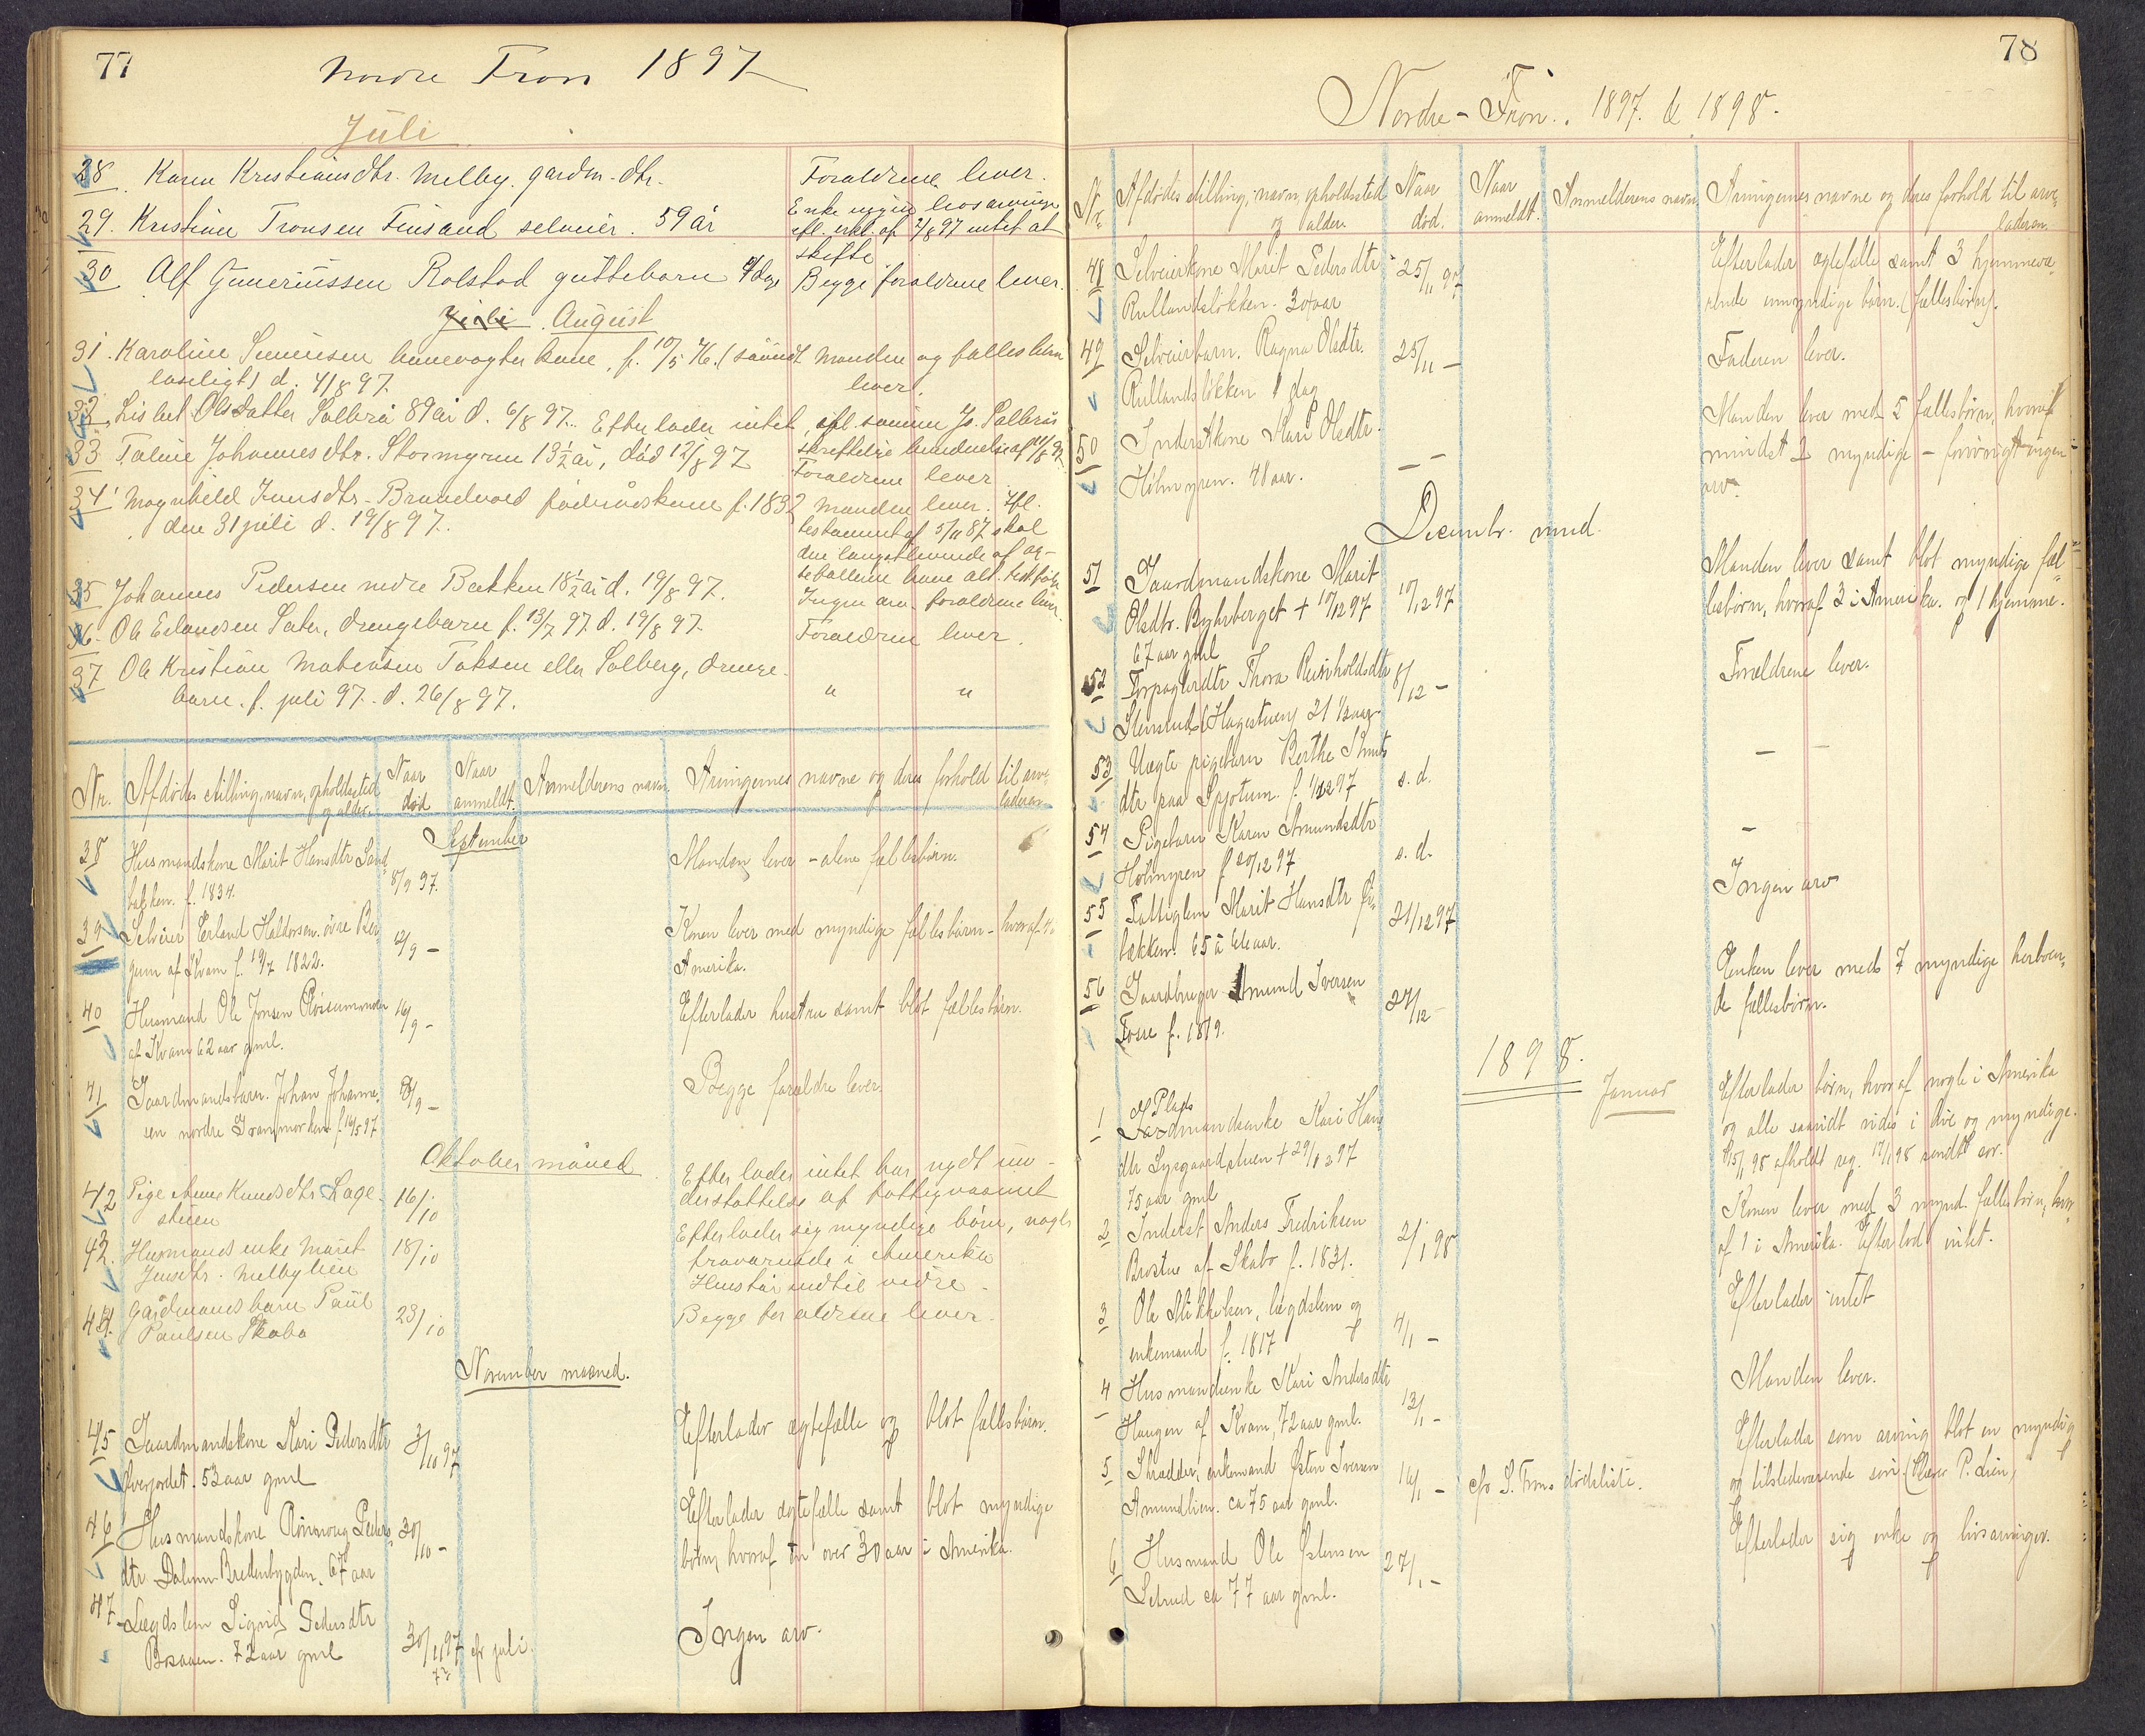 77
Nordre Fron 1897
Juli
28. Karen Kristiansdtr. Melby. gardm. dtr. Forældrene lever.
29. Kristian Tronsen Finsand selveier. 59 år Enke ingen livsarvinge
efl. erkl. af 2/8 97 intet at
skifte
30 Alf Guneriussen Rolstad guttebarn 4 dage Begge forældrene lever.
Juli August
31. Karoline Simensen banevogter kone, f. 10/5 76. (såvidt Manden og fællesbarn
læseligt) d. 4/8 97. lever.
32. Lisbet Olsdatter Solbrå 89 år d. 6/8 97. Efterlader intet, efl. sønnen Jo. Solbrås
skriftelige
33 Taline Johannesdtr. Stormyren 13½ år, død 12/8 97 Forældrene lever
34 Magnhild Iversdtr. Brandvold føderådskone f. 1832 Manden lever. Ifl.
den 31 juli d. 19/8 97. testament af 5/11 87 skal
den længstlevende af æg-
tefællerne have alt.
35 Johannes Pedersen nedre Bækken 18½ år d. 19/8 97. Ingen arv. Forældrene lever.
36. Ole Erlandsen Sater, drengebarn f. 13/7 97 d. 19/8 97. Forældrene lever.
37 Ole Kristian Mathiasen Toksen eller Solberg, drenge-
barn. f. juli 97. d. 26/8 97. " "
Nr. Afdødes stilling, navn, opholdssted Naar Naar Anmelderens navn Arvingernes navne og deres forhold til arve-
og alder. død anmeldt. laderen
September
38 Husmandskone Marit Hansdtr Sand- 8/9 97. Manden lever - alene fællesbørn.
bakken. f. 1834.
39 Selveier Erland Haldorsen øvre Ber- 12/9 - Konen lever med myndige fællesbørn - hvoraf
gum af Kvam f. 19/7 1822. Amerika.
40 Husmand Ole Jonsen Røssummoen 16/9 - Efterlader hustru samt blot fællesbørn.
af Kvam 62 aar gml.
41 Gaardmandsbarn. Johan Johanne- /9 - Begge forældre lever.
sen nordre f. 16/5 97
Oktober måned
42 Pige Anne Knudsdtr Hage- 16/10 Efterlader intet har nydt un-
stuen derstøttelse af fattigvæsenet
43. Husmands enke Marit 18/10 Efterlader sig myndige børn, nogle
Jensdtr. Melbylien fraværende i Amerika
Henstår indtil vidre.
44. Gårdmands barn Paul 23/10 Begge forældrene lever.
Paulsen Skabo
November maaned.
45 Gaardmandskone Kari Pedersdtr 3/10 97 Efterlader ægtefælle og blot fællesbørn.
Øverjordet. 53 aar gml
46 Husmandskone Rønnoug Peders- 30/10 - Efterlader ægtefælle samt blot myndige
dtr. Dalum Bredenbygden. 67 aar børn, hvoraf én over 30 aar i Amerika.
47 Lægdslem Sigrid Pedersdtr 30/11 97 cfr juli. Ingen arv.
Braaen. 72 aar gml 73
78
Nordre-Fron. 1897. & 1898.
Nr. Afdødes stilling, navn, opholdssted Naar Naar Anmelderens navn Arvingernes navne og deres forhold til arve-
og alder. død. anmeldt. laderen.
48 Selveierkone Marit Pedersdtr 25/11 97 Efterlader ægtefælle samt 3 hjemmevæ-
Rullandsløkken. 30 aar rende umyndige børn. (fællesbørn).
49 Selveierbarn. Ragna Olsdtr. 25/11 - Faderen lever.
Rullandsløkken 1 dag
50 Inderstkone Kari Olsdtr. - - Manden lever med 5 fællesbørn, hvoraf
Holmyren. 48 aar. mindst 2 myndige - forøvrigt ingen
arv.
Decembr. mnd.
51 Gaardmandskone Marit 10/12 97 Manden lever samt blot myndige fæl-
Olsdtr. Byhrberget + 10/12 97 lesbørn, hvoraf 3 i Amerika. og 1 hjemme.
67 aar gml
52 Forpagterdtr Thora Reinholdsdtr 8/12 - Forældrene lever.
(Hagestuen) 21 ½ aar
53 Uægte pigebarn Berthe Knuts- s. d. - -
dtr paa Spjotum. f. 1/12 97
54 Pigebarn Karen Amundsdtr s. d. -
Holmyren f 20/12 97
55 Fattiglem Marit Hansdtr 21/12 97 Ingen arv
bækken. 65 à 66 aar.
56 Gaardbruger Amund Iversen 27/12 - Enken lever med 7 myndige herboen-
Fosse f. 1819. de fællesbørn.
1898.
Januar
1 Plads
mandsenke Kari Han- Efterlader børn, hvoraf nogle i Amerika
dtr Lysgaardstuen + 29/12 97 og alle saavidt vides i live og myndige.
75 aar gml 15/1 98 afholdt reg. 17/1 98 sendt
2 Inderst Anders Fredriksen 2/1 98 Konen lever med 3 mynd. fællesbørn, hvor-
Brostue af Skabo f. 1831. af 1 i Amerika. Efterlod intet.
3 Ole Mikkelsen, lægdslem og 4/1 - Efterlader intet
enkemand f. 1817
4 Husmandsenke Kari Andersdtr 13/1 - Manden lever.
Haugen af Kvam, 72 aar gml.
5 Skrædder, enkemand Østen Iversen 16/1 - cfr S. Frons dødsliste. Efterlader som arving blot en myndig
Amundlien. ca 75 aar gml. og tilstedeværende søn. P. Lien)
6 Husmand Ole Østensen 27/1 - Efterlader sig enke og livsarvinger.
Letrud ca 77 aar gml.